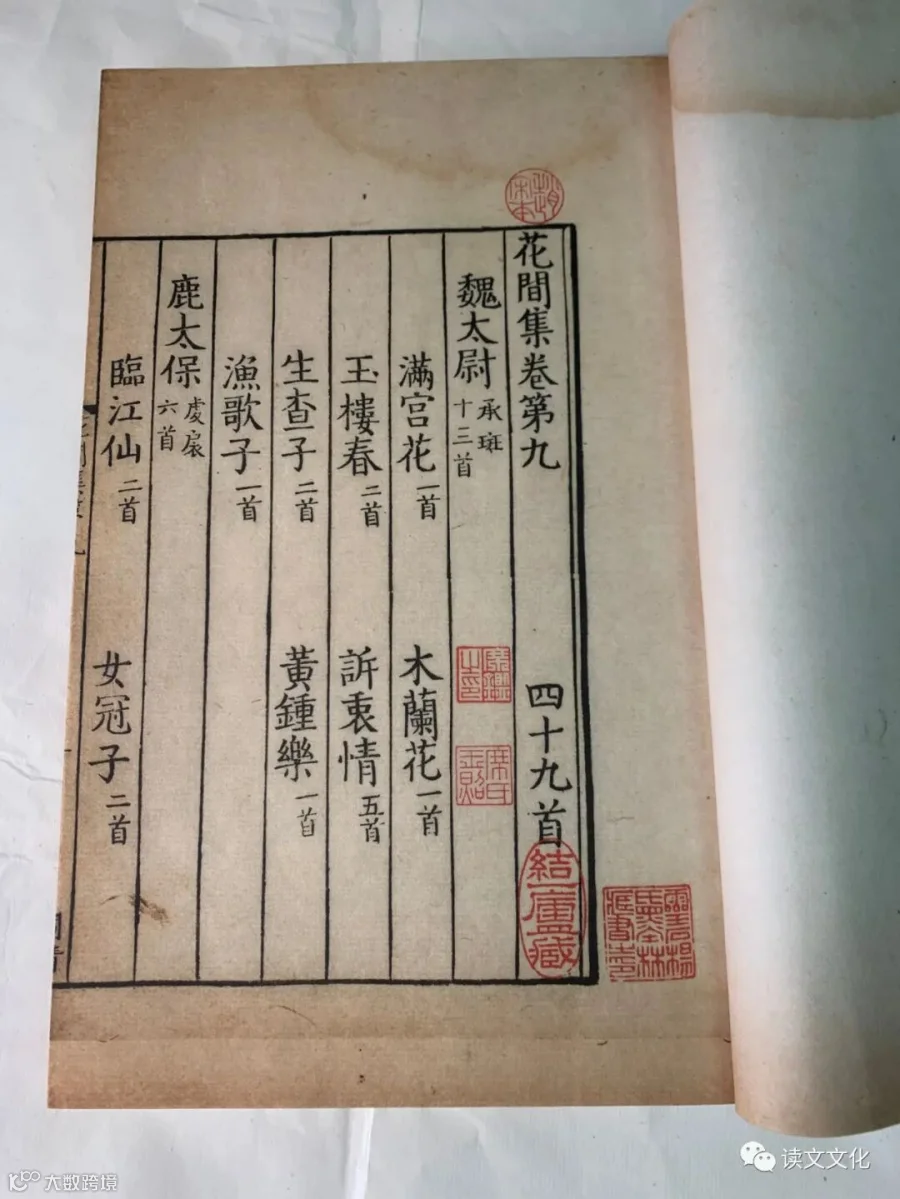 花間集卷第九　四十九首
魏太尉 承班 十三首
滿宮花 一首　木蘭花 一首
玉樓春 二首　訴衷情 五首
生查子 二首　黃鍾樂 一首
漁歌子 一首
鹿太保 虔扆 六首
臨江仙 二首　女冠子 二首
結一廬藏
席氏玉照
讀文文化
大数跨境